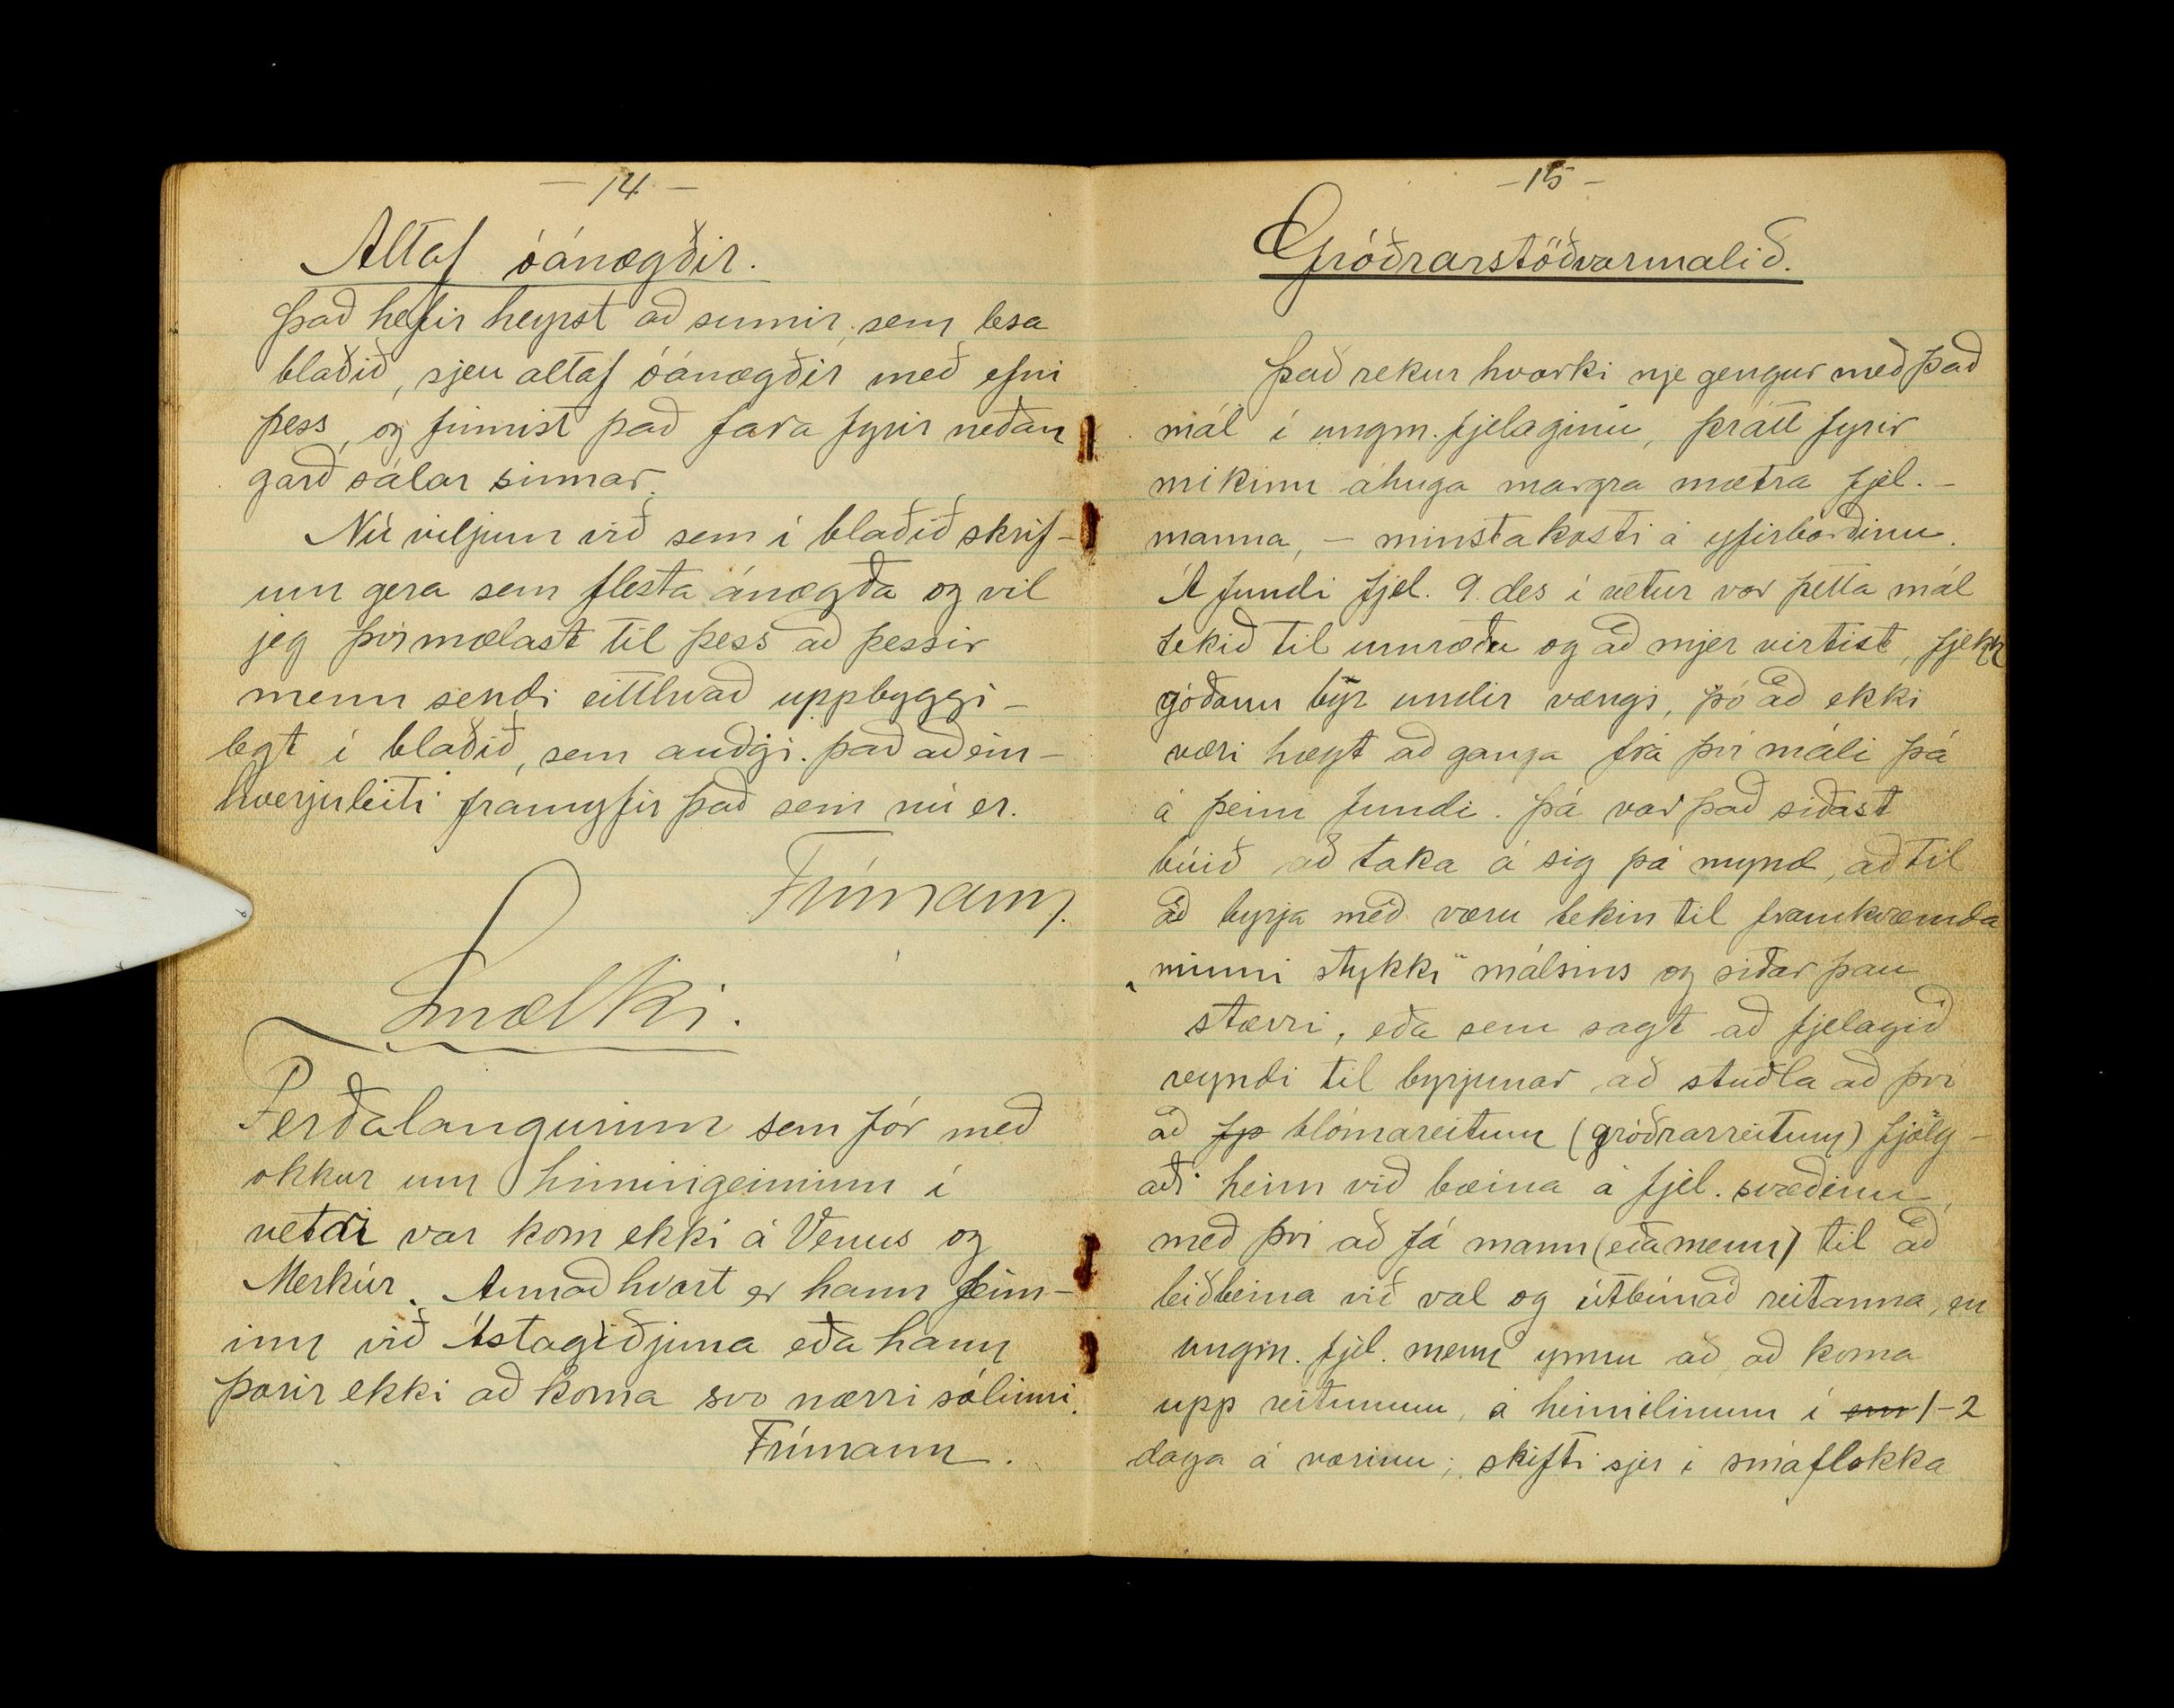 - 14 -
Altaf óánægðir.
Það hefir heyrst að sumir, sem lesa
blaðið, sjeu altaf óánægðir með efni
þess, og finnist það fara fyrir neðan
garð sálar sinnar.
Nú viljum við sem í blaðið skrif-
um gera sem flesta ánægða og vil
jeg því mælast til þess að þessir
menn sendi eitthvað uppbyggi-
legt í blaðið, sem auðgi það að ein-
hverju leiti framyfir það sem nú er.
Frímann.
Smælki.
Ferðalangurinn sem fór með
okkur um himingeiminn í
vetri var kom ekki á Venus og
Merkúr. Annaðhvort er hann feim-
inn við Ástagiðjuna eða hann
þorir ekki að koma svo nærri sólinni.
Frímann.
- 15 -
Gróðrarstöðvarmalið.
Það rekur hvorki nje gengur með það
mál í ungm. fjelaginu, þrátt fyrir
mikinn áhuga margra mætra fjel.-
manna, - minsta kosti á yfirborðinu.
Á fundi fjel. 9. des í vetur var þetta mál
tekið til umræðu og að mjer virtist, fjekk
góðann býr undir vængi, þó að ekki
væri hægt að ganga frá því máli þá
á þeim fundi. Þá var það síðast
búið að taka á sig þá mynd, að til
að byrja með væru tekin til framkvæmda
„minni stykki" málsins og síðar þau
stærri, eða sem sagt að fjelagið
reyndi til byrjunar að stuðla að því
að fp blómareitum (gróðrarreitum) fjölg-
aði heim við bæina á fjel. svæðinu,
með því að fá mann (eða menn) til að
leiðbeina við val og útbúnað reitanna, en
ungm. fjel. menn ynnu að að koma
upp reitunum, á heimilinum í em 1-2
daga á vorinu; skifti sjer í smáflokka